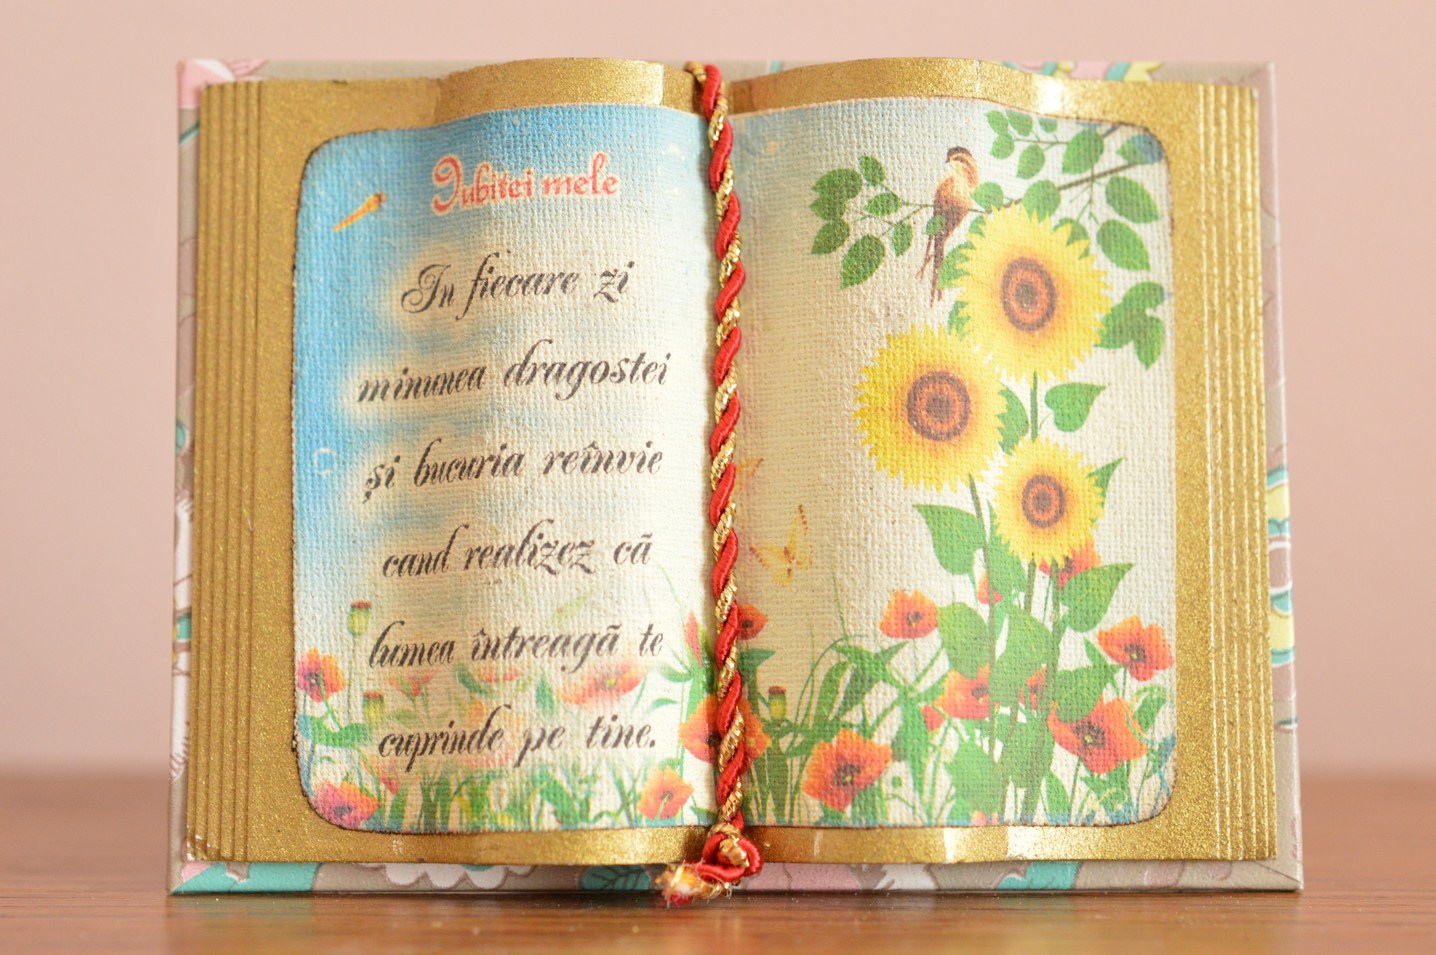 Iubitei mele
In fiecare zi
minunea dragostei
și bucuria reînvie
cand realizez că
lumea întreagă te
cuprinde pe tine.